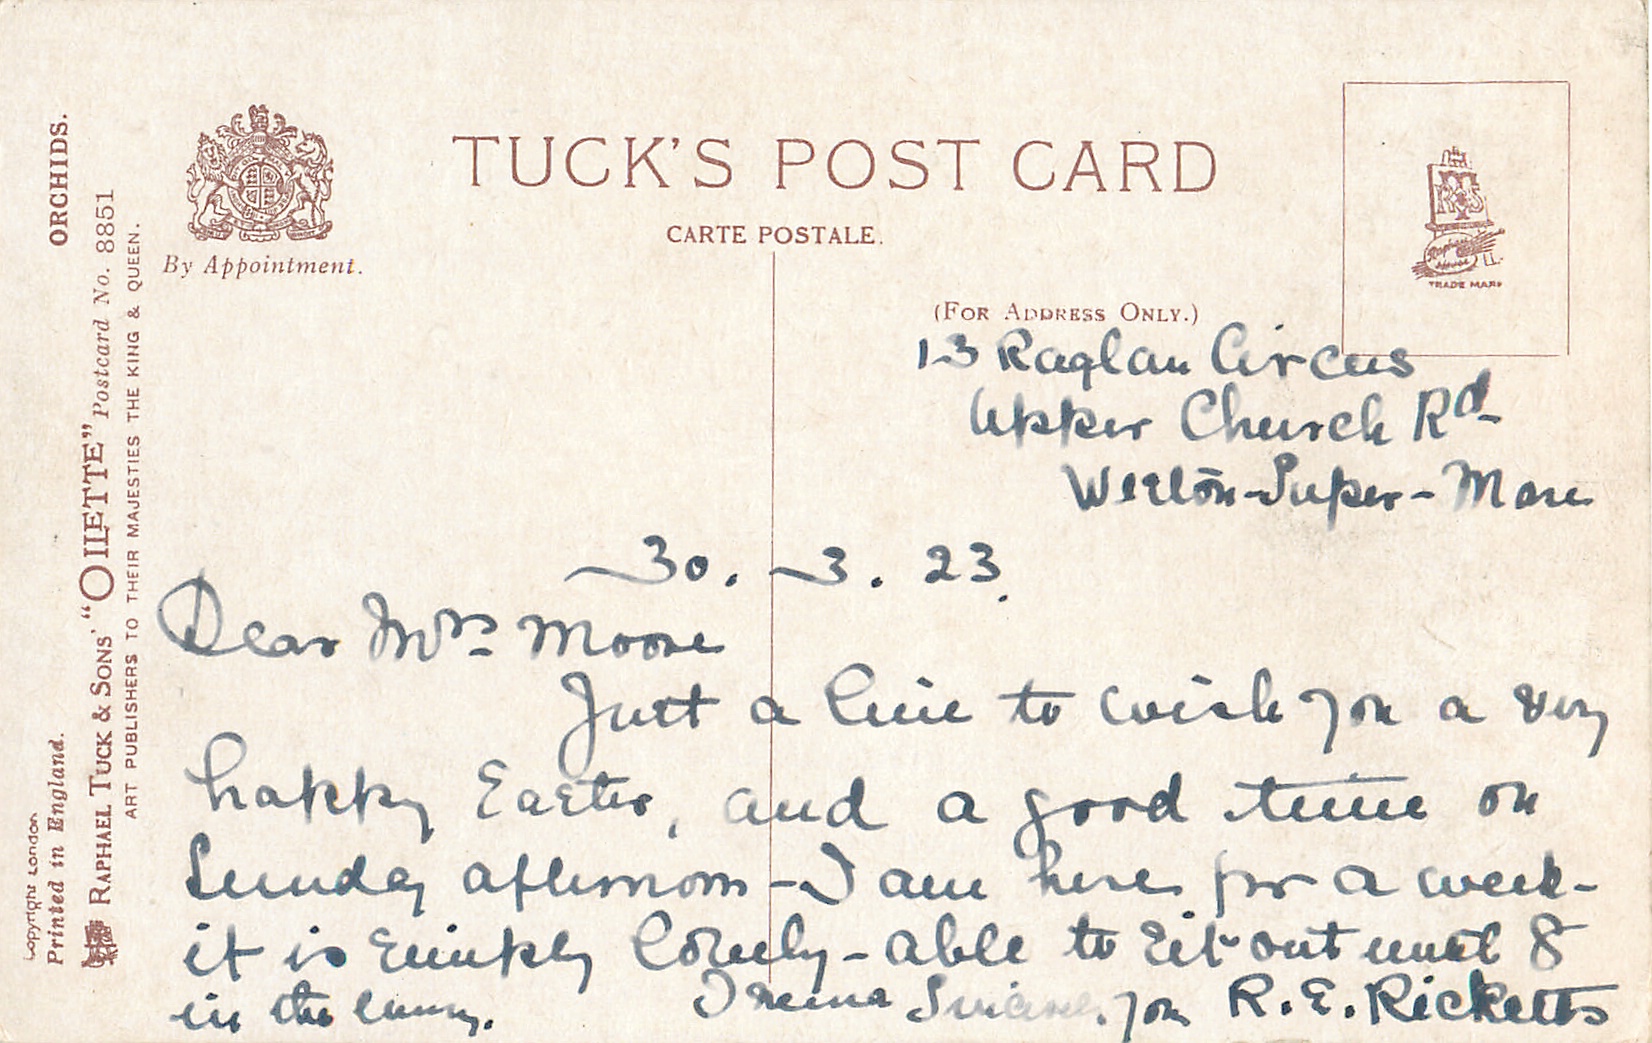 TUCK'S POST CARD
CARTE POSTALE.
(FOR ADDRESS ONLY.)
By Appointment.
TRADE MARK
ORCHIDS.
RAPHAEL TUCK & SONS' "OILETTE" Postcard No. 8851
ART PUBLISHERS TO THEIR MAJESTIES THE KING & QUEEN.
Copyright London
Printed in England.
13 Raglan Circus
Upper Church Rd
Weston-Super-Mare
30. 3. 23.
Dear Mrs Moore
Just a line to wish you a very
happy Easter, and a good time on
Sunday afternoon - I am here for a week -
it is simply lovely - able to sit out until 8
in the
R. E. Ricketts